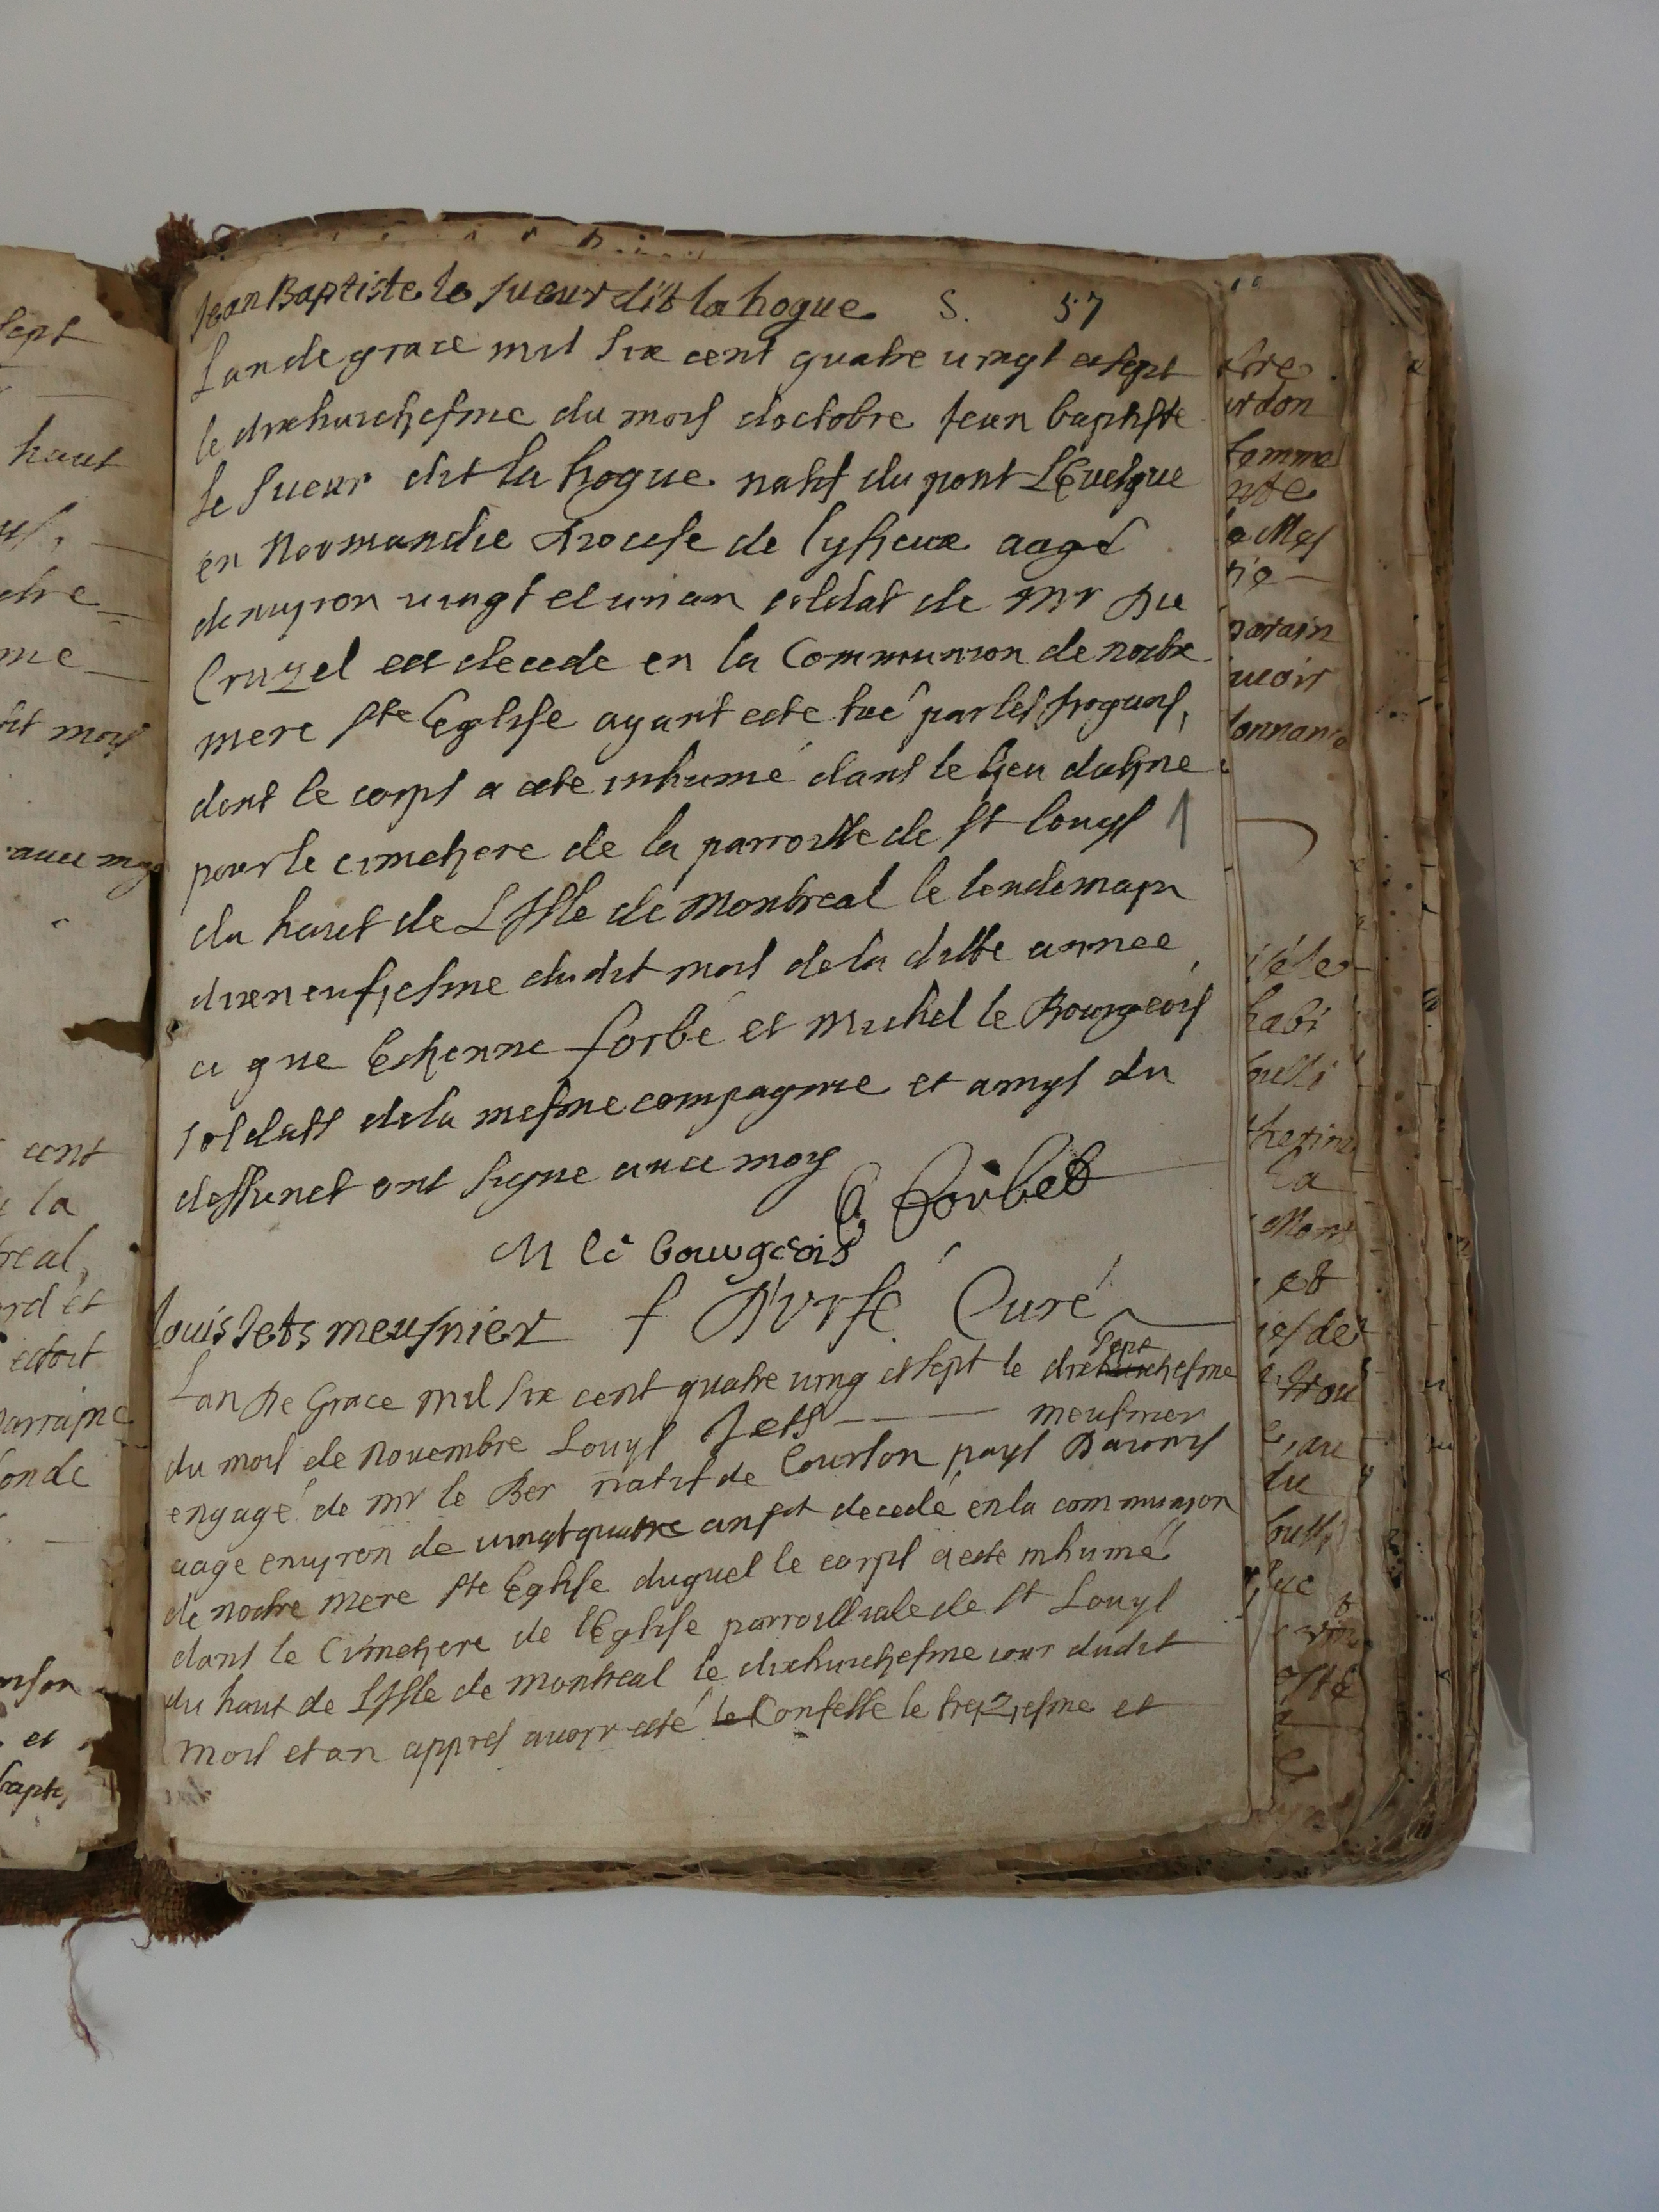 Jean Baptiste le Sueur dit la hogue S. 57
Lan de grace mil six cent quatre vingt et sept
le dixhuictiesme du mois doctobre Jean baptiste
le Sueur dit la hogue natif du pont LEuesque
en Normandie diocese de lysieux aagé
denuyron vingt et un an soldat de Mr Du
Cruzel est decede en la Communion de nostre
mere Ste Eglise ayant este tué par les Iroquois,
dont le corps a este inhumé dans le lieu destiné
pour le cimetiere de la parroisse de St Louys
du haut de LIsle de Montreal le lendemayn
dixneufiesme dudit mois de la ditte annee
ce que Estienne forbé et Michel le Bourgeois
soldats de la mesme compagnie et amys du
deffunct ont signe auec moy
E forbet
M le bourgeois
f D'Urfé Curé
louis Jets meusnier
Lan De Grace mil six cent quatre ving et sept le dixsept huictiesme
du mois de Nouembre Louys Jets meusnier
engagé de Mr le Ber natif de Courson pays Daunis
aage enuyron de vingt quatre ans est decedé en la communion
de nostre Mere Ste Eglise duquel le corps a este inhumé
dans le Cimetiere de lEglise parroissiale de St Louys
du haut de LIsle de Montreal le dixhuictiesme iour dudit
mois et an appres auoir esté le Confesse le treziesme et
sept
haut
me
dit mois
auec moy
cent
la
real
et
estoit
parrayne
et
bapt
stre
femme
parain
donnant
habi
la
et
du